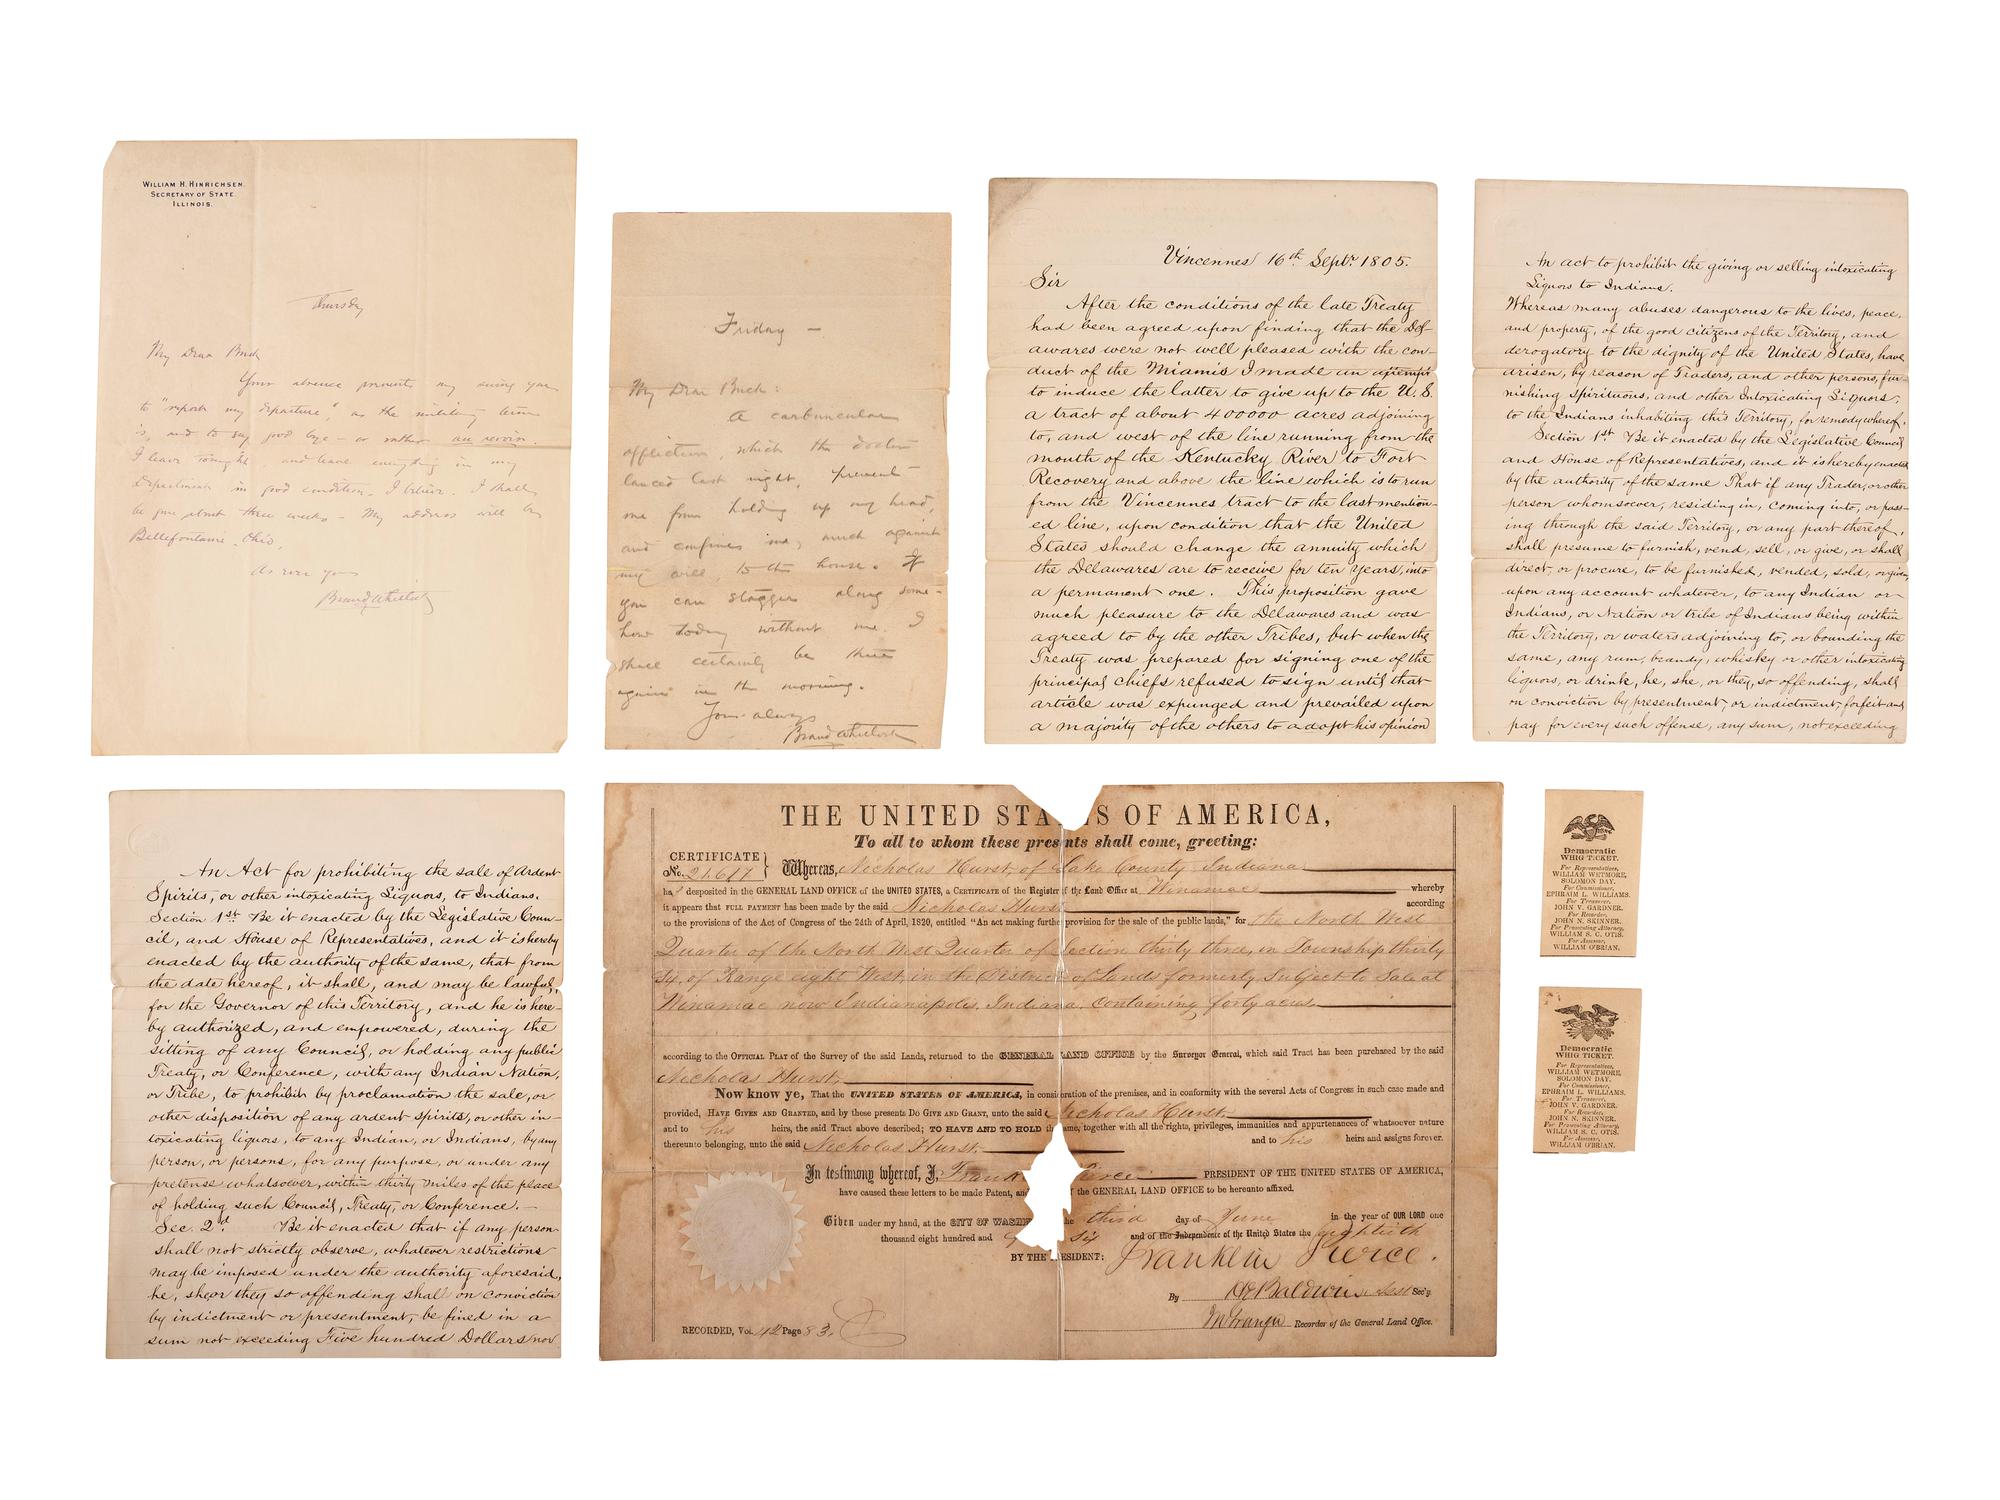 WILLIAM H. HINRICHSEN.
SECRETARY OF STATE.
ILLINOIS.
Thursday
My Dear Buck
Your absence prevents my seeing you
to "report my departure", as the military term
is, and to say good bye – or rather au revoir.
I leave tonight, and leave everything in my
department in good condition, I believe. I shall
be gone about three weeks – My address will be
Bellefontaine, Ohio.
As ever yours
Brand Whitlock
Friday –
My Dear Buck:
A carbuncular
affliction, which the doctor
lanced last night, prevents
me from holding up my head,
and confines me, much against
my will, to the house. If
you can stagger along some-
how today without me. I
shall certainly be there
again in the morning.
Yours always
Brand Whitlock
Vincennes 16th Septr. 1805.
Sir
After the conditions of the late Treaty
had been agreed upon finding that the Del-
awares were not well pleased with the con-
duct of the Miamis I made an attempt
to induce the latter to give up to the U.S.
a tract of about 400000 acres adjoining
to, and west of the line running from the
mouth of the Kentucky River to Fort
Recovery and above the line which is to run
from the Vincennes tract to the last mention-
ed line, upon condition that the United
States should change the annuity which
the Delawares are to receive for ten years, into
a permanent one. This proposition gave
much pleasure to the Delawares and was
agreed to by the other Tribes, but when the
Treaty was prepared for signing one of the
principal chiefs refused to sign until that
article was expunged and prevailed upon
a majority of the others to adopt his opinion
An act to prohibit the giving or selling intoxicating
Liquors to Indians.
Whereas many abuses dangerous to the lives, peace,
and property, of the good citizens of the Territory, and
derogatory to the dignity of the United States, have
arisen, by reason of Traders, and other persons, fur-
nishing Spirituous, and other Intoxicating Liquors,
to the Indians inhabiting this Territory, for remedy whereof.
Section 1st. Be it enacted by the Legislative Council
and House of Representatives, and it is hereby enacted
by the authority of the same That if any Trader, or other
person whomsoever, residing in, coming into, or pass-
ing through the said Territory, or any part thereof,
shall presume to furnish, vend, sell, or give, or shall
direct, or procure, to be furnished, vended, sold, or given,
upon any account whatever, to any Indian or
Indians, or Nation or tribe of Indians being within
the Territory, or waters adjoining to, or bounding the
same, any rum, brandy, whisky or other intoxicating
liquors, or drink, he, she, or they, so offending, shall
on conviction by presentment, or indictment, forfeit and
pay for every such offense, any sum, not exceeding
An Act for prohibiting the sale of Ardent
Spirits, or other intoxicating Liquors, to Indians.
Section 1st. Be it enacted by the Legislative Coun-
cil, and House of Representatives, and it is hereby
enacted by the authority of the same, that from
the date hereof, it shall, and may be lawful,
for the Governor of this Territory, and he is here-
by authorized, and empowered, during the
sitting of any Council, or holding any public
Treaty, or Conference, with any Indian Nation,
or Tribe, to prohibit by proclamation the sale, or
other disposition of any ardent spirits, or other in-
toxicating liquors, to any Indian, or Indians, by any
person, or persons, for any purpose, or under any
pretense whatsoever, within thirty miles of the place
of holding such Council, Treaty, or Conference.–
Sec. 2d. Be it enacted that if any person
shall not strictly observe, whatever restrictions
may be imposed under the authority aforesaid,
he, she or they so offending shall on conviction
by indictment or presentment, be fined in a
sum not exceeding Five hundred Dollars nor
THE UNITED STATES OF AMERICA,
To all to whom these presents shall come, greeting:
CERTIFICATE
No. 21,617
Whereas, Nicholas Hurst, of Lake County, Indiana
has deposited in the GENERAL LAND OFFICE of the UNITED STATES, a CERTIFICATE of the Register of the Land Office at Winamac whereby
it appears that FULL PAYMENT has been made by the said Nicholas Hurst according
to the provisions of the Act of Congress of the 24th of April, 1820, entitled "An act making further provision for the sale of the public lands," for the North West
Quarter of the North West Quarter of Section thirty three, in Township thirty
six, of Range eight West, in the District of Lands formerly Subject to Sale at
Winamac now Indianapolis, Indiana, Containing forty acres
according to the OFFICIAL PLAT of the Survey of the said Lands, returned to the GENERAL LAND OFFICE by the Surveyor General, which said Tract has been purchased by the said
Nicholas Hurst,
Now know ye, That the UNITED STATES OF AMERICA, in consideration of the premises, and in conformity with the several Acts of Congress in such case made and
provided, HAVE GIVEN AND GRANTED, and by these presents DO GIVE AND GRANT, unto the said Nicholas Hurst
and to his heirs, the said Tract above described; TO HAVE AND TO HOLD the same, together with all the rights, privileges, immunities and appurtenances of whatsoever nature
thereunto belonging, unto the said Nicholas Hurst and to his heirs and assigns forever.
In testimony whereof, I, Frank Pierce PRESIDENT OF THE UNITED STATES OF AMERICA,
have caused these letters to be made Patent, and of the GENERAL LAND OFFICE to be hereunto affixed.
Given under my hand, at the CITY OF WASH the third day of June in the year of OUR LORD one
thousand eight hundred and six and of the Independence of the United States the eightieth
BY THE PRESIDENT: Franklin Pierce.
By Baldwin, Asst Sec'y.
RECORDED, Vol. 42 Page 83.
Granger Recorder of the General Land Office.
Democratic
WHIG TICKET.
For Representatives,
WILLIAM WETMORE,
SOLOMON DAY.
For Commissioner,
EPHRAIM L. WILLIAMS.
For Treasurer,
JOHN V. GARDNER.
For Recorder,
JOHN N. SKINNER.
For Prosecuting Attorney,
WILLIAM S. C. OTIS.
For Assessor,
WILLIAM O'BRIAN.
Democratic
WHIG TICKET.
For Representatives,
WILLIAM WETMORE,
SOLOMON DAY.
For Commissioner,
EPHRAIM L. WILLIAMS.
For Treasurer,
JOHN V. GARDNER.
For Recorder,
JOHN N. SKINNER.
For Prosecuting Attorney,
WILLIAM S. C. OTIS.
For Assessor,
WILLIAM O'BRIAN.